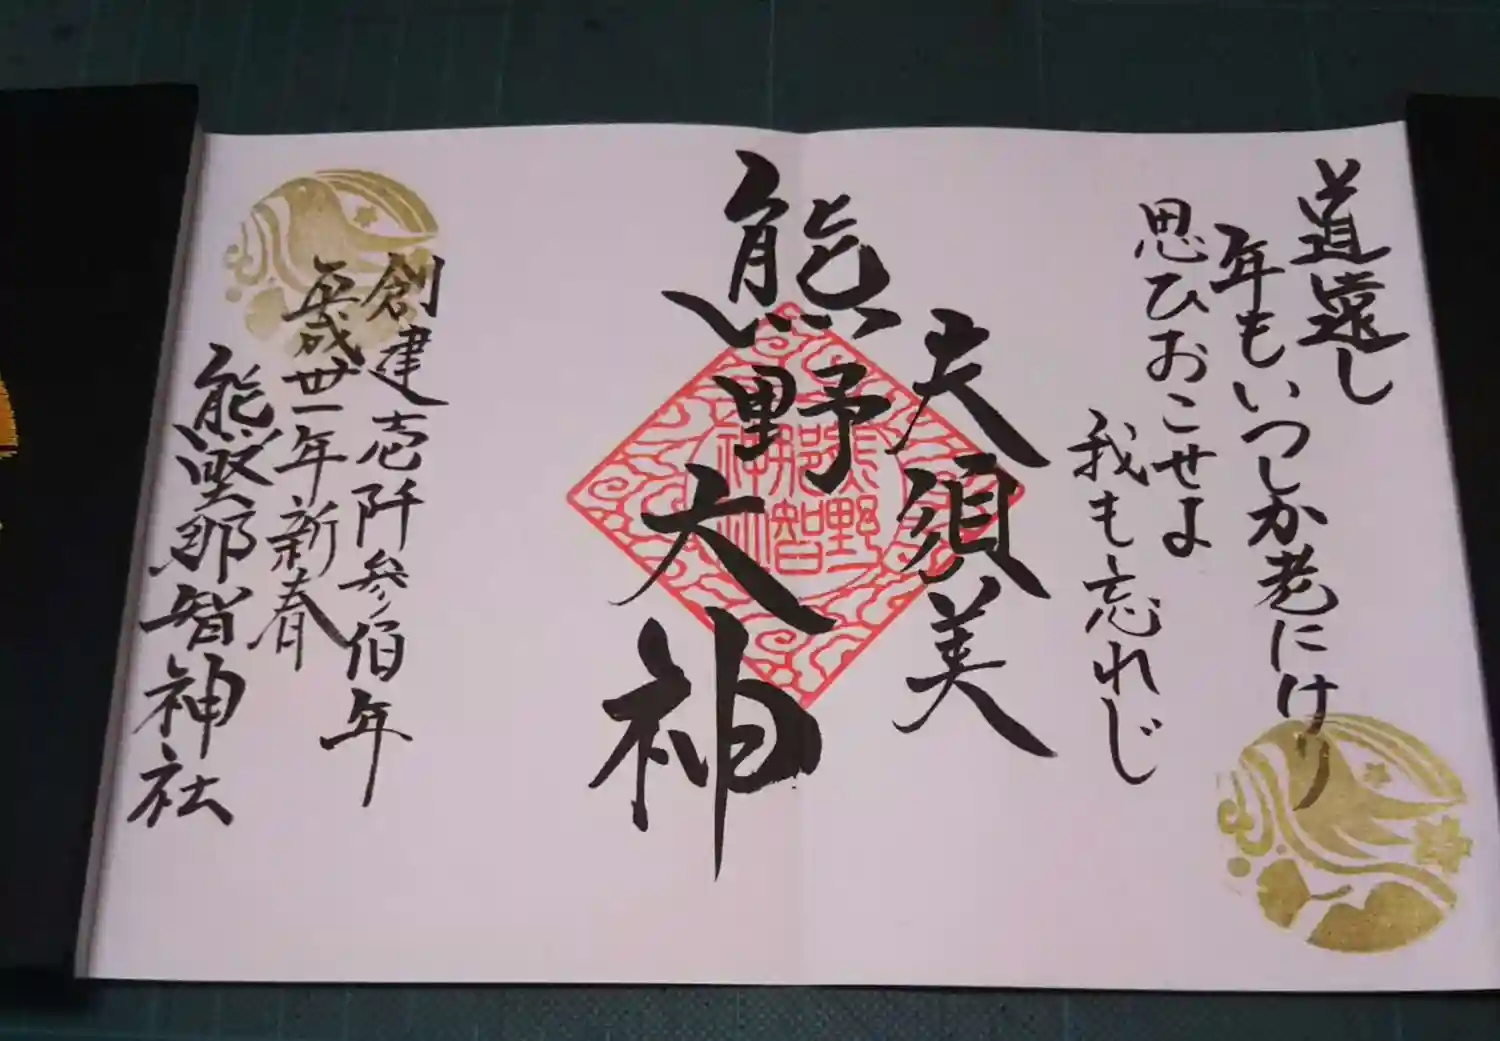 道遠し
年もいつしか老にけり
思ひおこせよ
我も忘れじ
夫須美
熊野大神
熊野
那智
神社
創建壱阡参佰年
平成丗一年新春
熊野那智神社